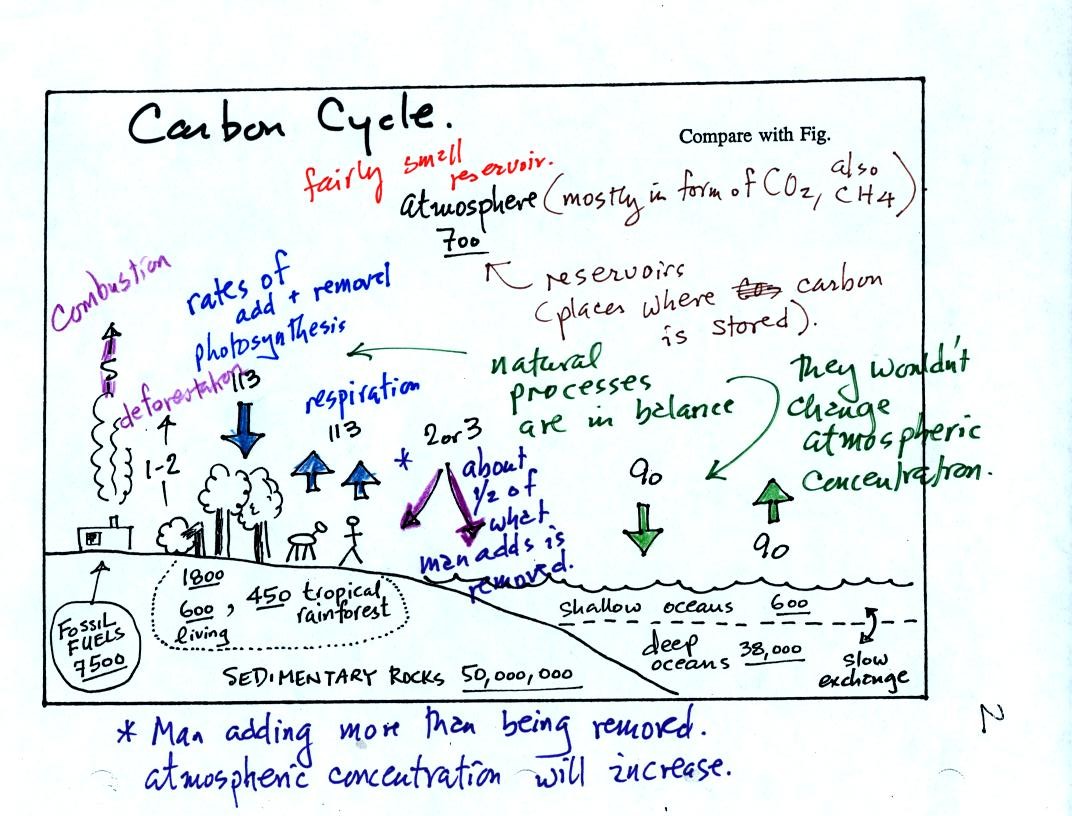 Carbon Cycle.
Compare with Fig.
fairly small
reservoir.
atmosphere (mostly in form of CO2, also CH4)
700
reservoirs
(places where carbon
is stored).
Combustion
5
deforestation
1-2
1
rates of
add + removal
photosynthesis
113
respiration
113
natural
processes
are in balance
They wouldn't
change
atmospheric
concentration.
* 2 or 3
about
1/2 of
what
man adds is
removed.
90
90
FOSSIL
FUELS
7500
1800
600, 450 tropical
rainforest
living
shallow oceans 600
deep
oceans 38,000
slow
exchange
SEDIMENTARY ROCKS 50,000,000
* Man adding more than being removed.
atmospheric concentration will increase.